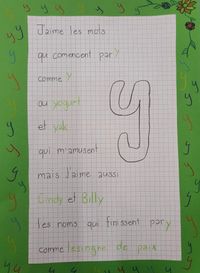 J'aime les mots
qui comencent par y
comme y
ou yogurt
et yak
qui m'amusent
mais J'aime aussi
Cindy et Billy
les noms qui finissent par y
comme lesingne de paix
y